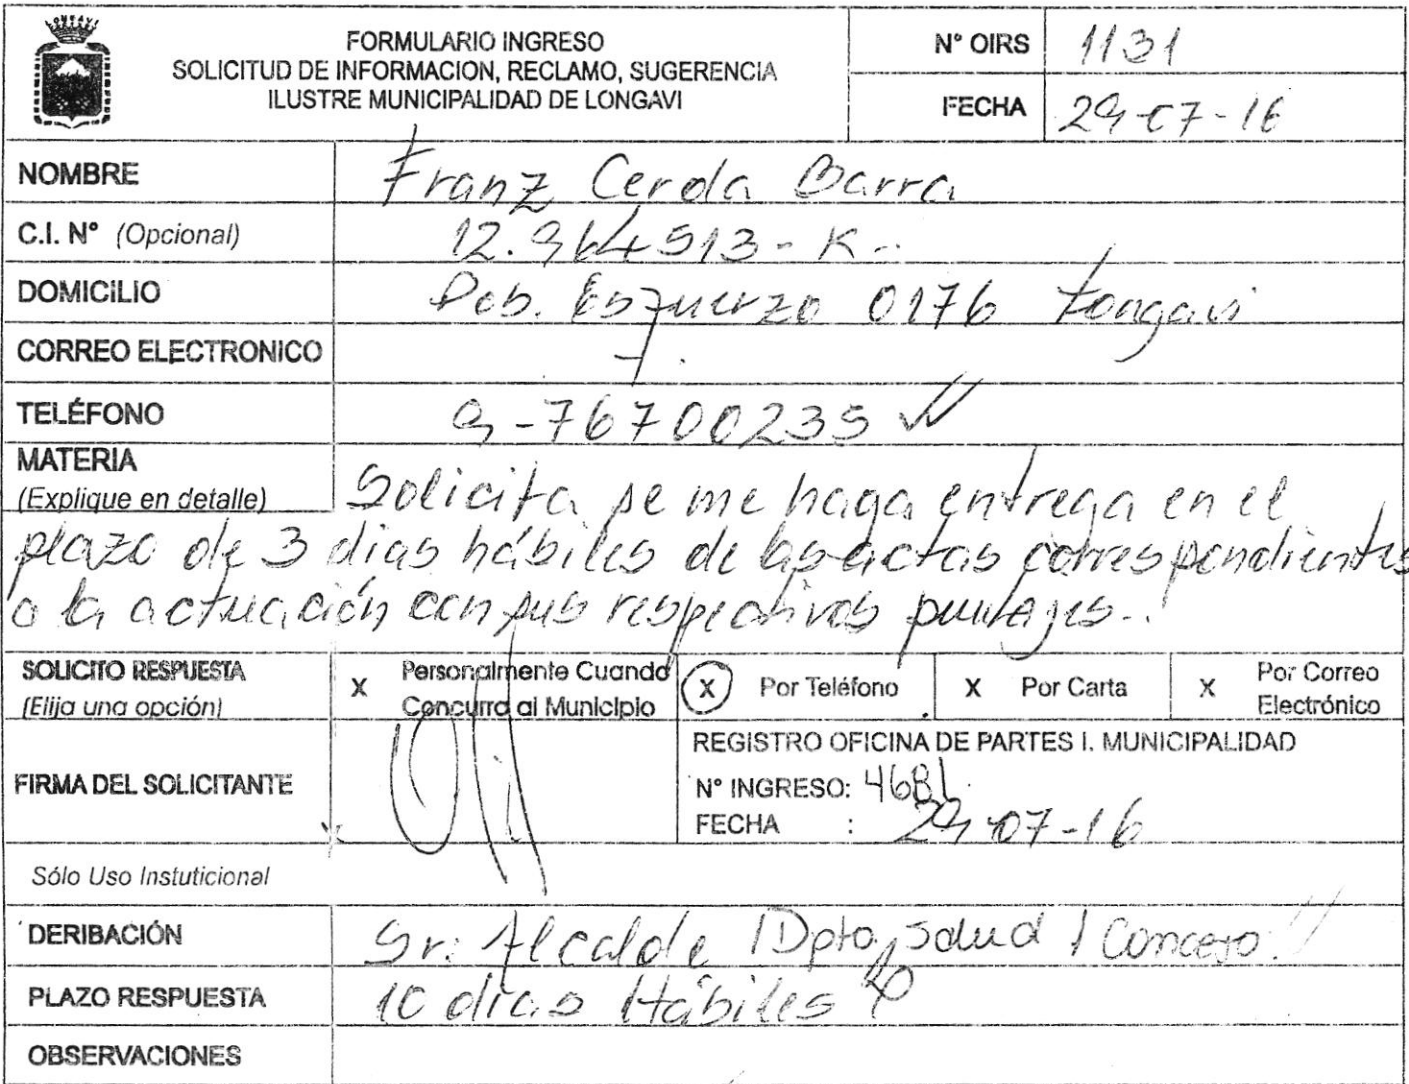 FORMULARIO INGRESO
SOLICITUD DE INFORMACION, RECLAMO, SUGERENCIA
ILUSTRE MUNICIPALIDAD DE LONGAVI
N° OIRS 1131
FECHA 29-07-16
NOMBRE Franz Cerda Barra
C.I. N° (Opcional) 12.964513-K-
DOMICILIO Pob. Esfuerzo 0176 Longavi
CORREO ELECTRONICO
TELÉFONO 9-76700235
MATERIA
(Explique en detalle) Solicita se me haga entrega en el
plazo de 3 dias hábiles de las actas correspondientes
a la actuación con sus respectivos puntajes..
SOLICITO RESPUESTA
(Elija una opción)
X Personalmente Cuando
Concurra al Municipio
X Por Teléfono
X Por Carta
X Por Correo
Electrónico
FIRMA DEL SOLICITANTE
REGISTRO OFICINA DE PARTES I. MUNICIPALIDAD
N° INGRESO: 4681
FECHA : 29-07-16
Sólo Uso Instuticional
DERIBACIÓN Sr. Alcalde / Dpto, Salud / Concejo
PLAZO RESPUESTA 10 dias Hábiles
OBSERVACIONES